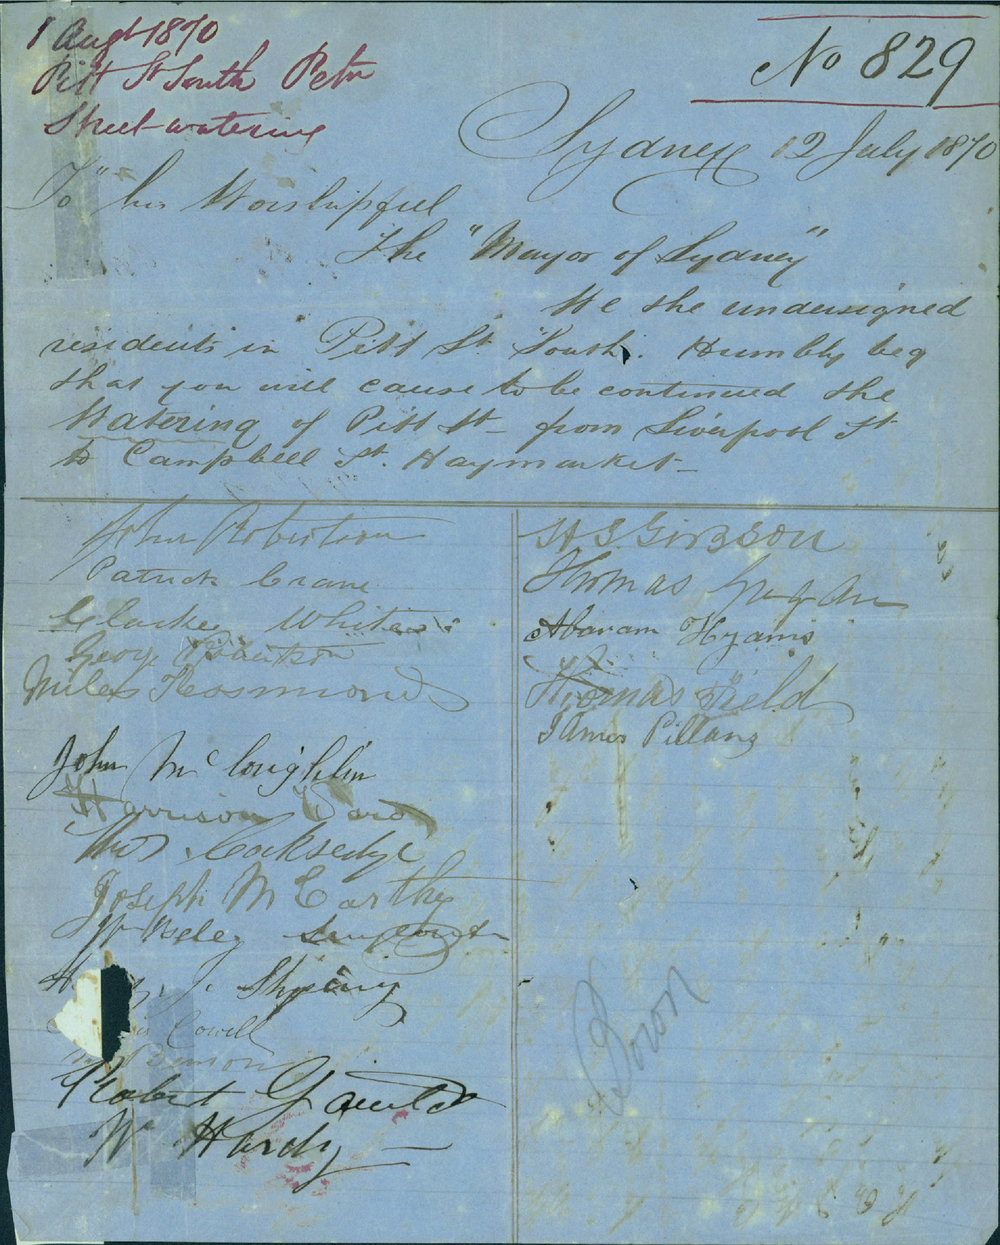 1 Augt 1870
Pitt St South Petn
Street-watering
No 829
Sydney 12 July 1870
To his Worshipful
The "Mayor of Sydney"
We the undersigned
residents in Pitt St. South. Humbly beg
that you will cause to be continued the
Watering of Pitt St from Liverpool St
to Campbell St. Haymarket
John Robertson
Patrick Crane
Clarke White
George Robertson
Miles Rosmond
John Mc loughlin
Harrison Ward
Thos. Cocksedge
Joseph McCarthy
Shying
Cowell
Robert
W Hardy
H S Gibson
Thomas
Abaram Hyams
Thomas Field
James Pillans